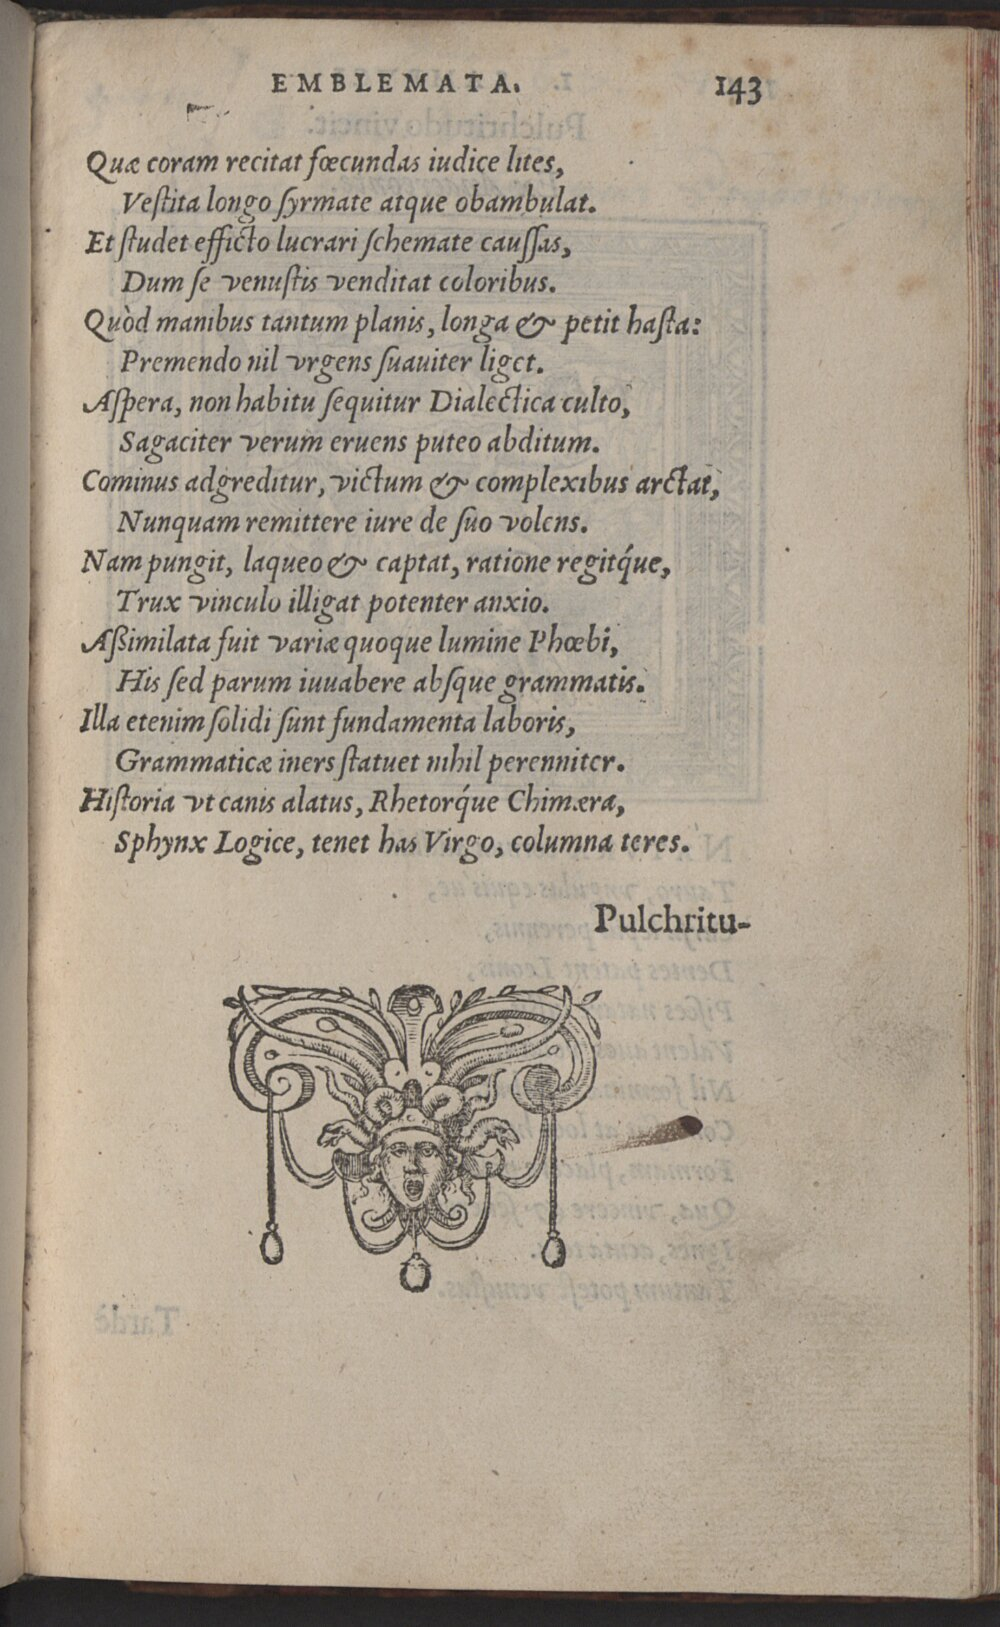 EMBLEMATA. 143
Quæ coram recitat fœcundas iudice lites,
Veſtita longo ſyrmate atque obambulat.
Et ſtudet efficto lucrari ſchemate cauſſas,
Dum ſe venuſtis venditat coloribus.
Quòd manibus tantum planis, longa & petit haſta:
Premendo nil vrgens ſuauiter liget.
Aſpera, non habitu ſequitur Dialectica culto,
Sagaciter verum eruens puteo abditum.
Cominus adgreditur, victum & complexibus arctat,
Nunquam remittere iure de ſuo volens.
Nam pungit, laqueo & captat, ratione regitq́ue,
Trux vinculo illigat potenter anxio.
Aßimilata fuit variæ quoque lumine Phœbi,
His ſed parum iuuabere abſque grammatis.
Illa etenim ſolidi ſunt fundamenta laboris,
Grammaticæ iners ſtatuet nihil perenniter.
Hiſtoria vt canis alatus, Rhetorq́ue Chimæra,
Sphynx Logice, tenet has Virgo, columna teres.
Pulchritu-